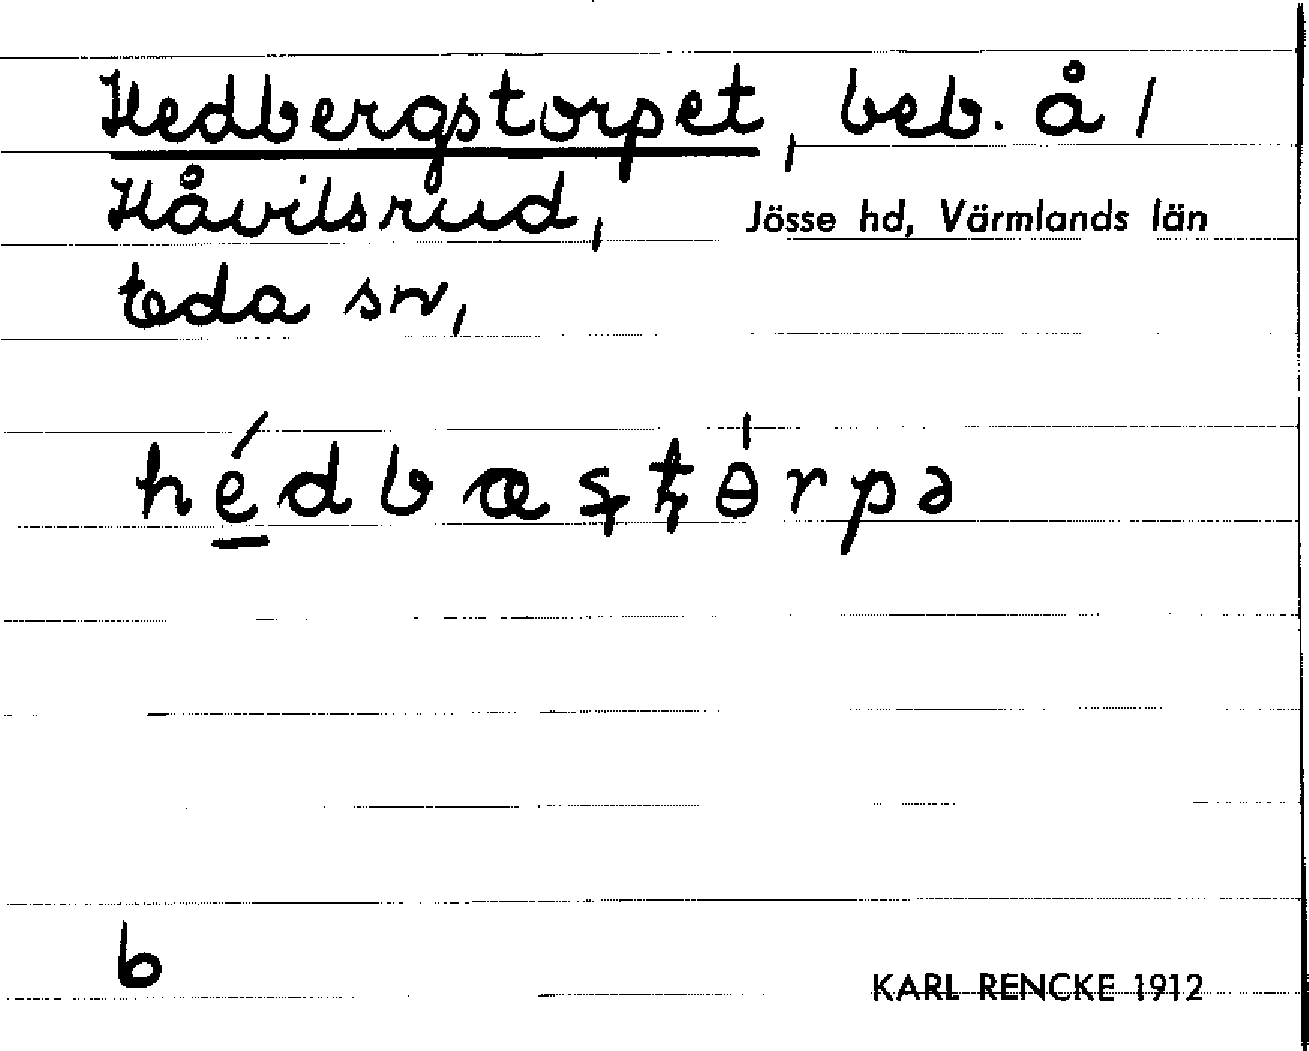 Hedbergstorpet, beb. å /
Håvilsrud, Jösse hd, Värmlands län
Eda sn,
hédbæʂʈɵ́rpə
b
KARL RENCKE 1912